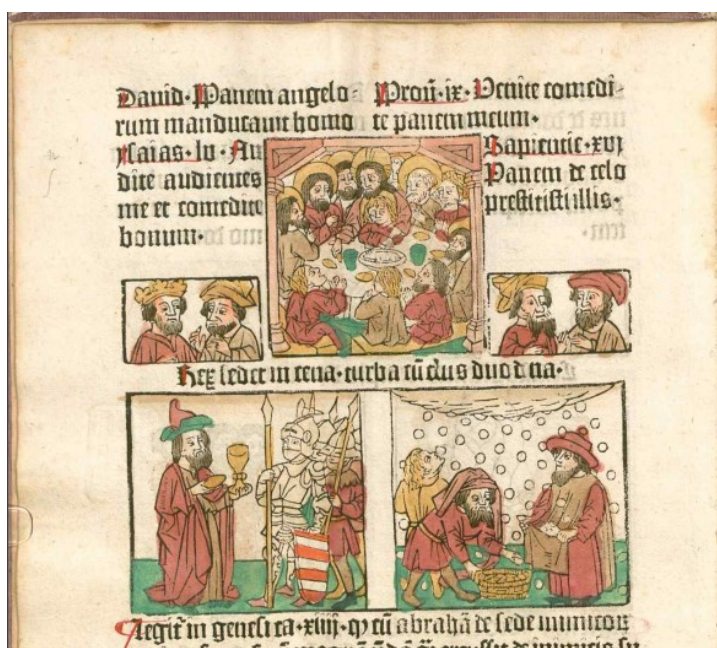 Dauid· Panem angelo-
rum manducauit homo
Isaias·lv· Au
dite audientes
me et comedite
bonum·
Prou̅·ix· Venite comedi-
te panem meum·
Sapientie·xvj
Panem de celo
prestitisti illis·
Rex sedet in cena·turba cū ctus duo dena·
Legit̅ in genesi ca·xiiij· ꝙ cū abrahā de sede inimicoꝝ